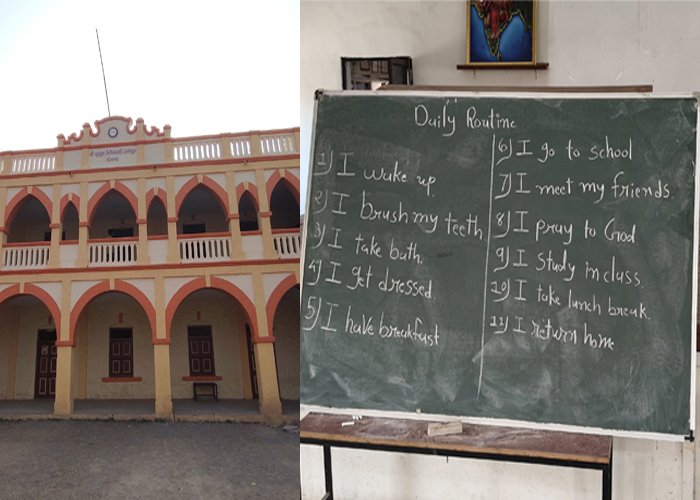 Daily Routine
1) I wake up.
2) I brush my teeth
3) I take bath.
4) I get dressed.
5) I have breakfast
6) I go to school
7) I meet my friends.
8) I pray to God
9) I study in class.
10) I take lunch break.
11) I return home